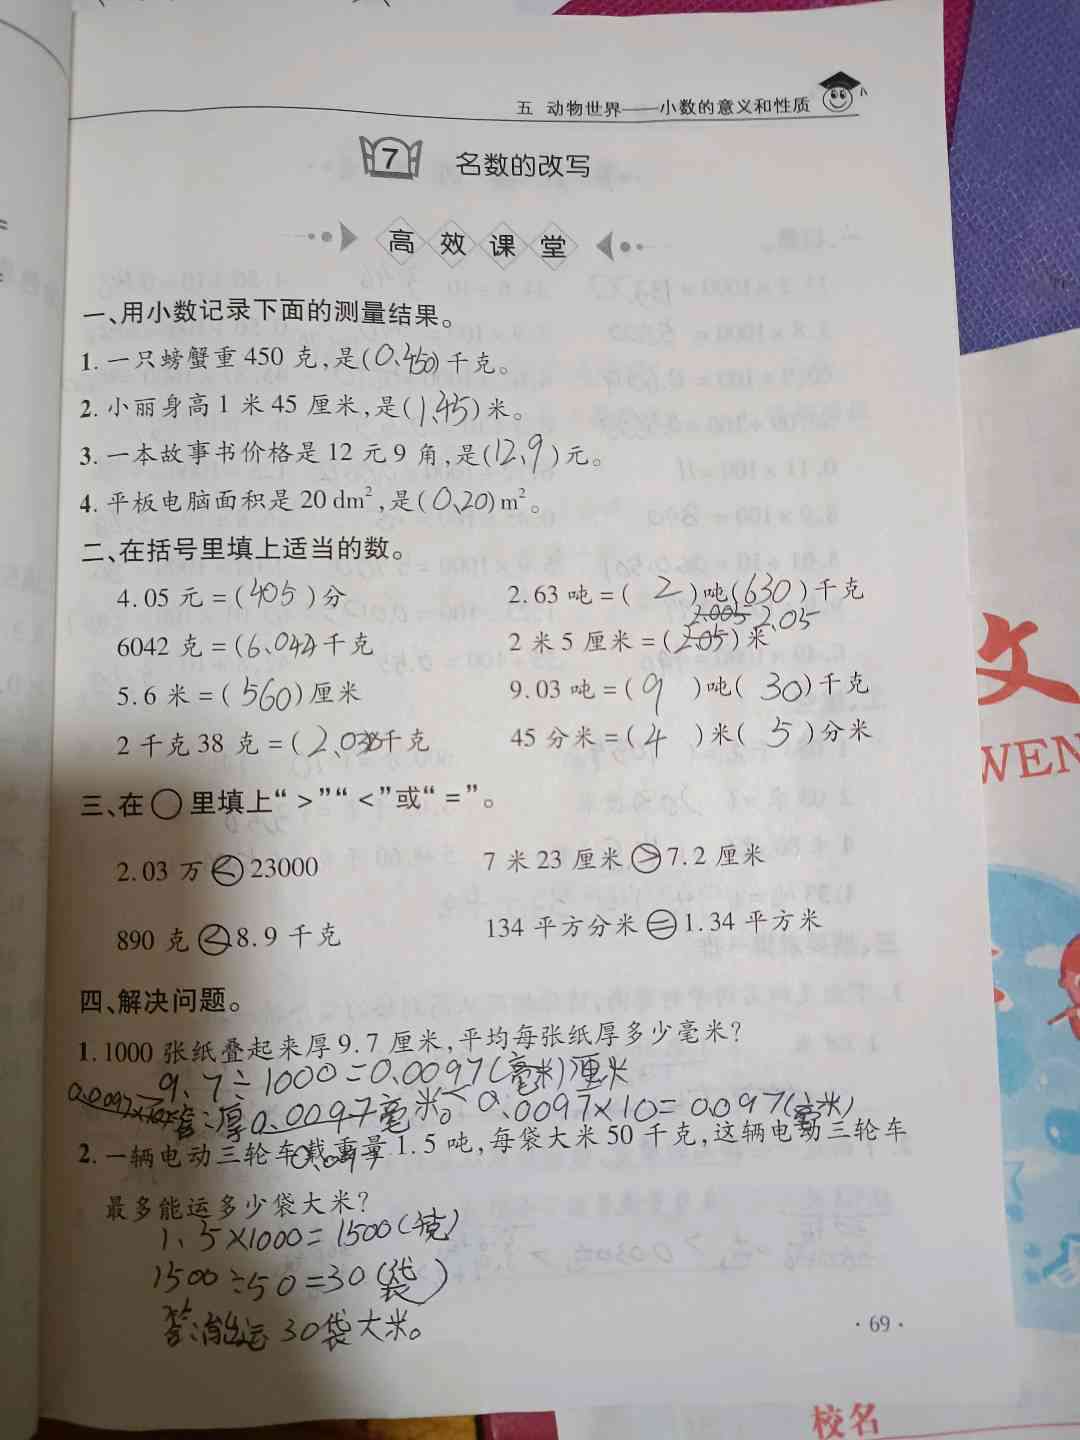 五 动物世界——小数的意义和性质
7 名数的改写
高效课堂
一、用小数记录下面的测量结果。
1. 一只螃蟹重 450 克,是(0.450)千克。
2. 小丽身高 1 米 45 厘米,是(1.45)米。
3. 一本故事书价格是 12 元 9 角,是(12.9)元。
4. 平板电脑面积是 20 dm²,是(0.20)m²。
二、在括号里填上适当的数。
4.05 元 = (405)分 2.63 吨 = ( 2 )吨(630 )千克
2.005 2.05
6042 克 = (6.042)千克 2 米 5 厘米 = (2.05)米
5.6 米 = ( 560)厘米 9.03 吨 = ( 9 )吨( 30)千克
2 千克 38 克 = ( 2.038)千克 45 分米 = ( 4 )米( 5 )分米
三、在 ○ 里填上“ > ”“ < ”或“ = ”。
2.03 万 < 23000 7 米 23 厘米 > 7.2 厘米
890 克 < 8.9 千克 134 平方分米 = 1.34 平方米
四、解决问题。
1. 1000 张纸叠起来厚 9.7 厘米,平均每张纸厚多少毫米?
9.7÷1000=0.0097(毫米)厘米
答:厚0.0097毫米。 0.0097×10=0.097(毫米)
0.097
2. 一辆电动三轮车载重量 1.5 吨,每袋大米 50 千克,这辆电动三轮车
最多能运多少袋大米?
1.5×1000=1500(千克)
1500÷50=30(袋)
答:能运 30袋大米。
· 69 ·
文
WEN
校名